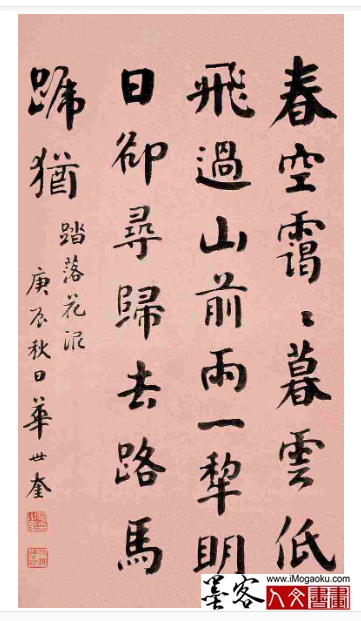 春空靄〻暮雲低
飛過山前雨一犁明
日卻尋歸去路馬
蹄猶
踏落花泥
庚辰秋日華世奎
墨客
www.iMogaoku.com
人文書畫